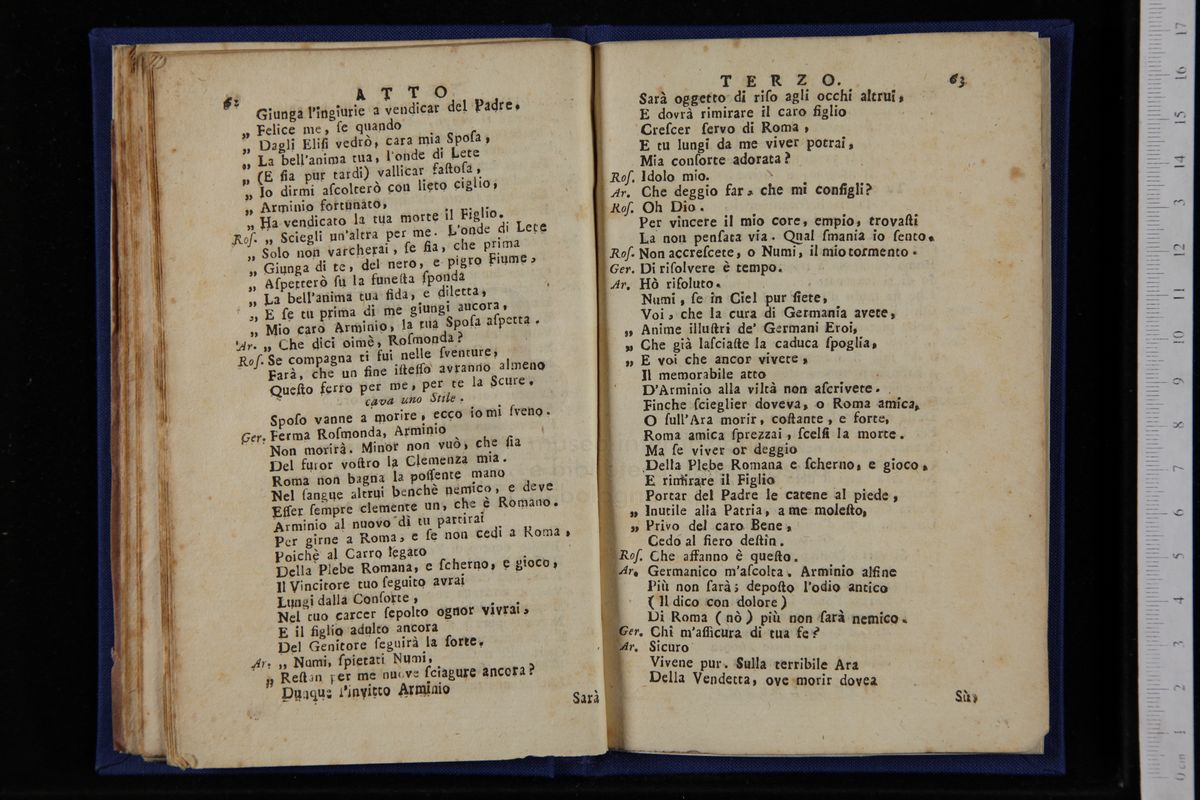 62
ATTO
Giunga l'ingiurie a vendicar del Padre.
„ Felice me, ſe quando
„ Dagli Eliſi vedrò, cara mia Spoſa,
„ La bell'anima tua, l'onde di Lete
„ (E ſia pur tardi) vallicar faſtoſa,
„ Io dirmi aſcolterò con lieto ciglio,
„ Arminio fortunato,
„ Ha vendicato la tua morte il Figlio.
Roſ. „ Sciegli un'altra per me. L'onde di Lete
„ Solo non varcherai, ſe ſia, che prima
„ Giunga di te, del nero, e pigro Fiume,
„ Aſpetterò ſu la funeſta ſponda
„ La bell'anima tua fida, e diletta,
„ E ſe tu prima di me giungi ancora,
„ Mio caro Arminio, la tua Spoſa aſpetta.
Ar. „ Che dici oimè, Roſmonda?
Roſ. Se compagna ti fui nelle ſventure,
Farà, che un fine iſteſſo avranno almeno
Queſto ferro per me, per te la Scure.
cava uno Stile.
Spoſo vanne a morire, ecco io mi ſveno.
Ger. Ferma Roſmonda, Arminio
Non morirà. Minor non vuò, che ſia
Del furor voſtro la Clemenza mia.
Roma non bagna la poſſente mano
Nel ſangue altrui benchè nemico, e deve
Eſſer ſempre clemente un, che è Romano.
Arminio al nuovo dì tu partirai
Per girne a Roma, e ſe non cedi a Roma,
Poichè al Carro legato
Della Plebe Romana, e ſcherno, e gioco,
Il Vincitore tuo ſeguito avrai
Lungi dalla Conſorte,
Nel tuo carcer ſepolto ognor vivrai,
E il figlio adulto ancora
Del Genitore ſeguirà la ſorte.
Ar. „ Numi, ſpietati Numi,
„ Reſtan per me nuove ſciagure ancora?
„ Dunque l'invitto Arminio
Sarà
TERZO.
63
Sarà oggetto di riſo agli occhi altrui,
E dovrà rimirare il caro figlio
Creſcer ſervo di Roma,
E tu lungi da me viver potrai,
Mia conſorte adorata?
Roſ. Idolo mio.
Ar. Che deggio far, che mi conſigli?
Roſ. Oh Dio.
Per vincere il mio core, empio, trovaſti
La non penſata via. Qual ſmania io ſento.
Roſ. Non accreſcete, o Numi, il mio tormento.
Ger. Di riſolvere è tempo.
Ar. Hò riſoluto.
Numi, ſe in Ciel pur ſiete,
Voi, che la cura di Germania avete,
„ Anime illuſtri de' Germani Eroi,
„ Che già laſciaſte la caduca ſpoglia,
„ E voi che ancor vivete,
Il memorabile atto
D'Arminio alla viltà non aſcrivete.
Finche ſcieglier doveva, o Roma amica,
O ſull'Ara morir, coſtante, e forte,
Roma amica ſprezzai, ſcelſi la morte.
Ma ſe viver or deggio
Della Plebe Romana e ſcherno, e gioco,
E rimirare il Figlio
Portar del Padre le catene al piede,
„ Inutile alla Patria, a me moleſto,
„ Privo del caro Bene,
Cedo al fiero deſtin.
Roſ. Che affanno è queſto.
Ar. Germanico m'aſcolta. Arminio alfine
Più non ſarà; depoſto l'odio antico
(Il dico con dolore)
Di Roma (nò) più non ſarà nemico.
Ger. Chi m'aſſicura di tua fe?
Ar. Sicuro
Vivene pur. Sulla terribile Ara
Della Vendetta, ove morir dovea
Sù,
0 cm 1 2 3 4 5 6 7 8 9 10 11 12 13 14 15 16 17